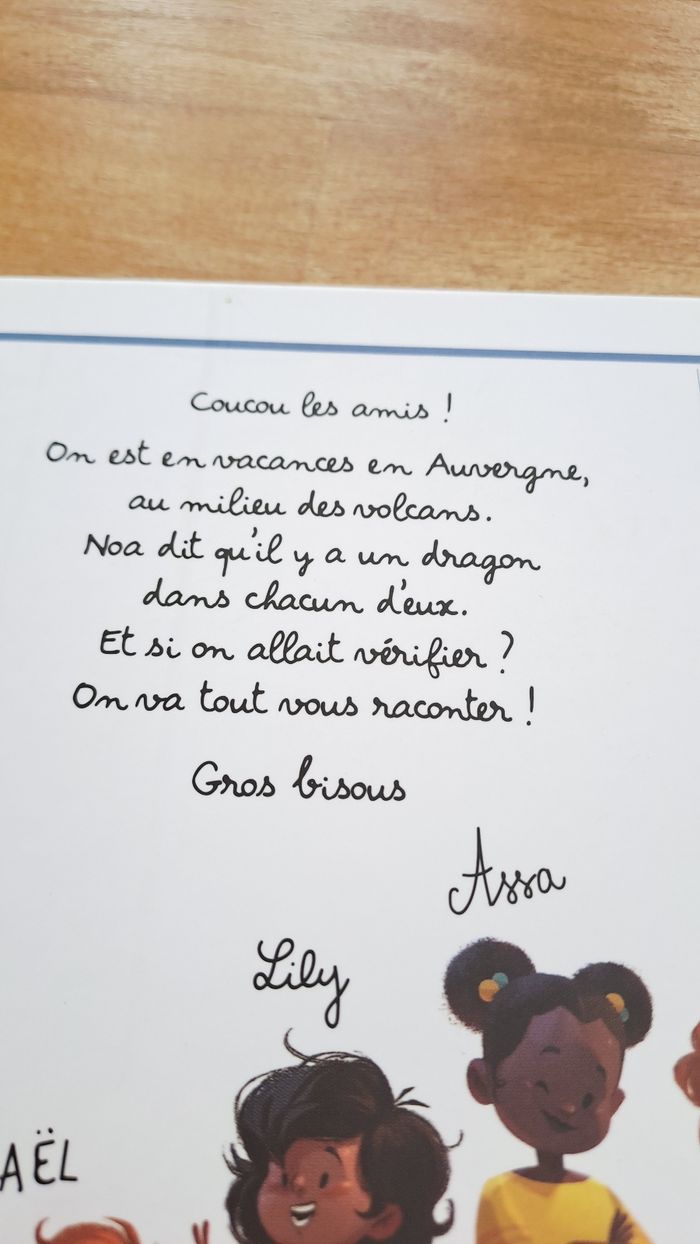 Coucou les amis !
On est en vacances en Auvergne,
au milieu des volcans.
Noa dit qu'il y a un dragon
dans chacun d'eux.
Et si on allait vérifier ?
On va tout vous raconter !
Gros bisous
Assa
Lily
AËL